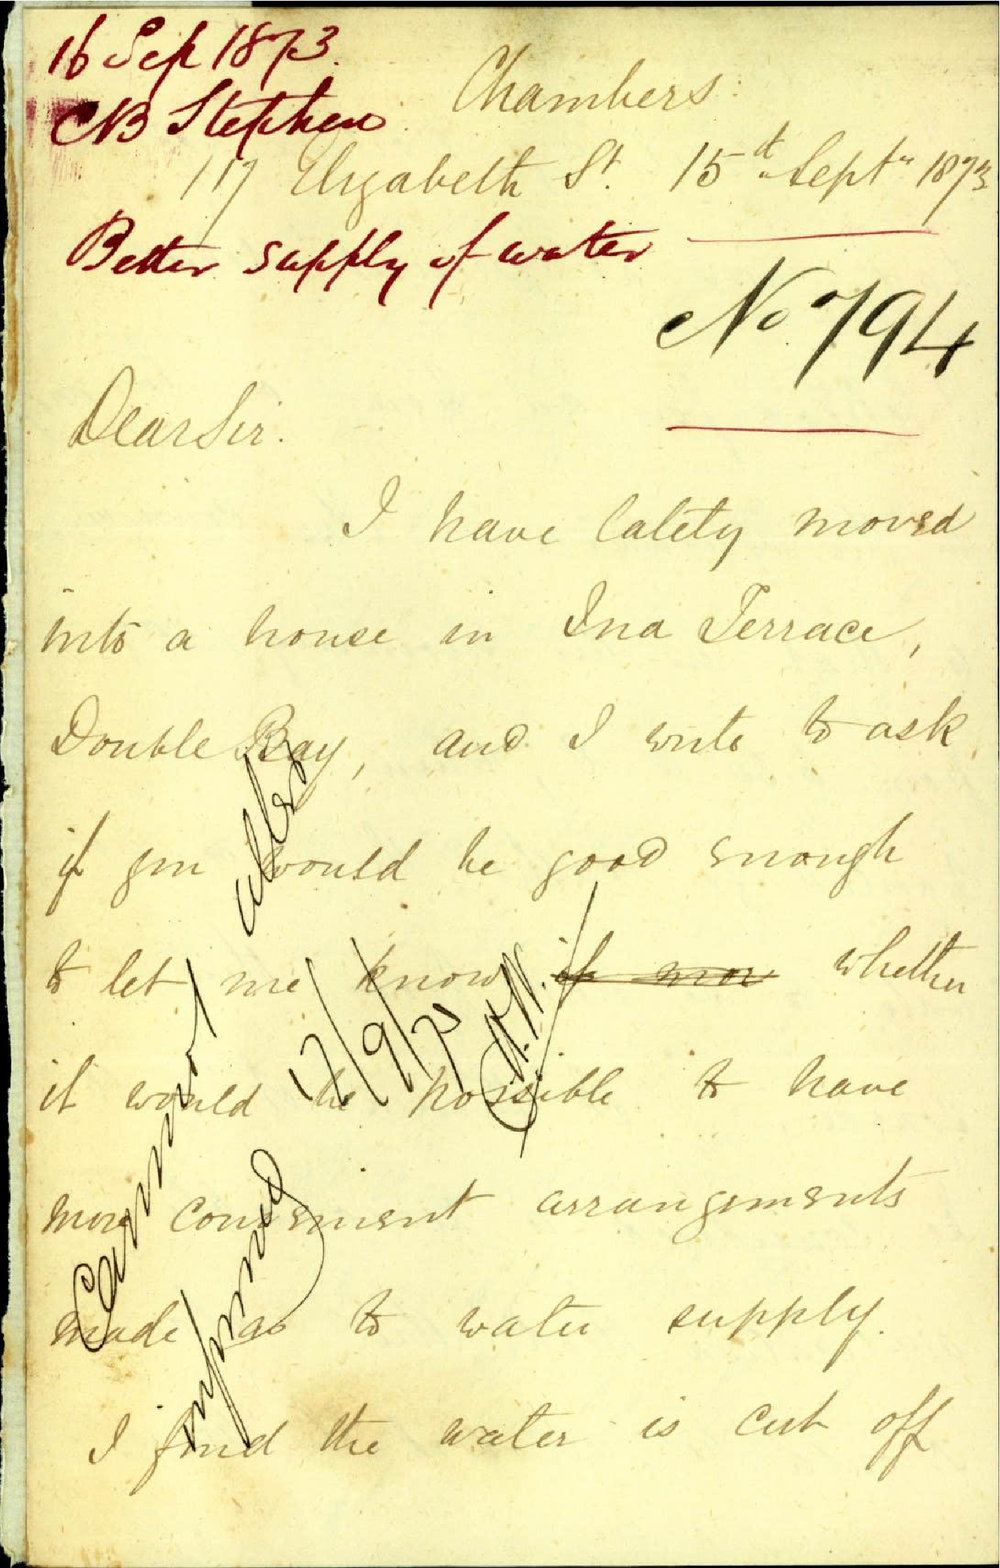 16 Sep 1873.
CB Stephen
Chambers.
117 Elizabeth St. 15th Sept. 1873
Better supply of water
No 794
Dear Sir.
I have lately moved
into a house in Ina Terrace,
Double Bay, and I write to ask
if you would be good enough
to let me know if mor whether
it would be possible to have
more convenient arrangements
made as to water supply.
I find the water is cut off
Cannot alter
informed
17/9/73